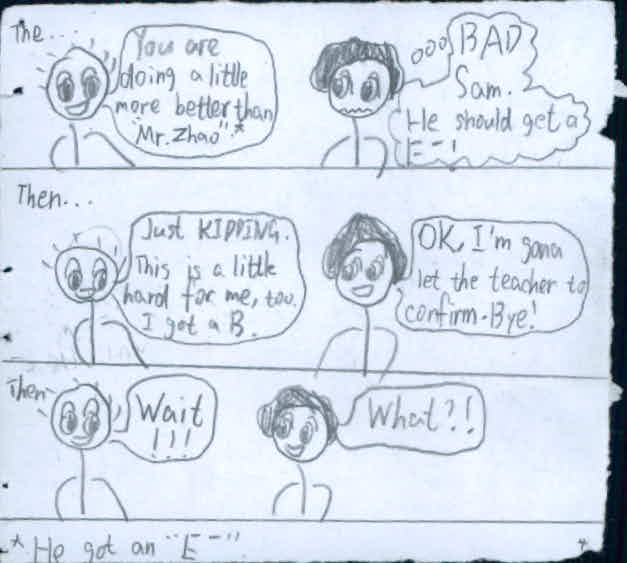 The...
You are
doing a little
more better than
"Mr. Zhao".*
BAD
Sam.
He should get a
E-!
Then...
Just KIDDING.
This is a little
hard for me, too.
I got a B.
OK, I'm gona
let the teacher to
confirm. Bye!
Then
Wait
!!!
What?!
* He got an "E-".